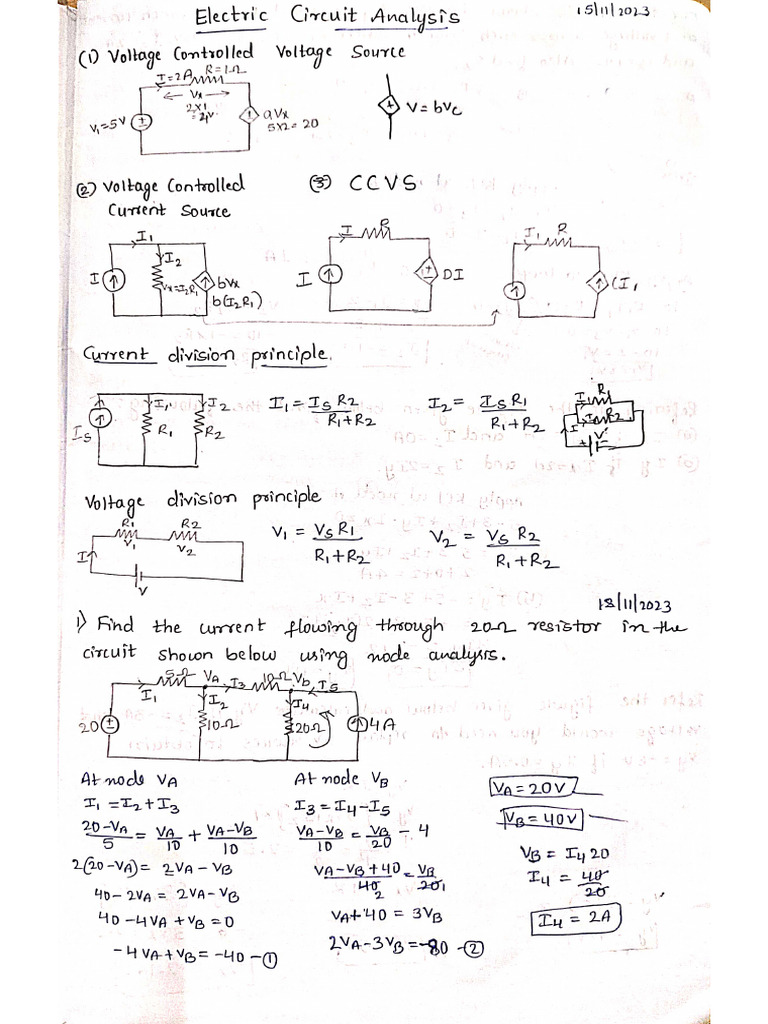 Electric Circuit Analysis
15/11/2023
(1) Voltage Controlled Voltage Source
I=2A R=1Ω
Vx
2x1
=2V
V1=5V
aVx
5x2=20
V = bVc
(2) Voltage Controlled
Current Source
(3) CCVS
I1
I2
I
Vx=I2R1
bVx
b(I2R1)
I R
I
DI
I1 R
CI1
Current division principle.
Is
I1
R1
I2
R2
I1 = Is R2
R1+R2
I2 = Is R1
R1+R2
R1
I1
I2 R2
I
+ V
Voltage division principle
R1 R2
V1 V2
I
V
V1 = Vs R1
R1+R2
V2 = Vs R2
R1+R2
18/11/2023
1) Find the current flowing through 20Ω resistor in the
circuit shown below using node analysis.
5Ω VA I3 10Ω Vb I5
I1
I2
I4
20
10Ω
20Ω
4A
At node VA
I1 = I2 + I3
20-VA/5 = VA/10 + VA-VB/10
2(20-VA) = 2VA - VB
40-2VA = 2VA - VB
40-4VA+VB=0
-4VA+VB=-40-①
At node VB
I3 = I4-I5
VA-VB/10 = VB/20 - 4
VA-VB+40/10 = VB/20
2 1
VA+40 = 3VB
2VA-3VB=-80-②
VA=20V
VB=40V
VB = I4 20
I4 = 40/20
I4 = 2A